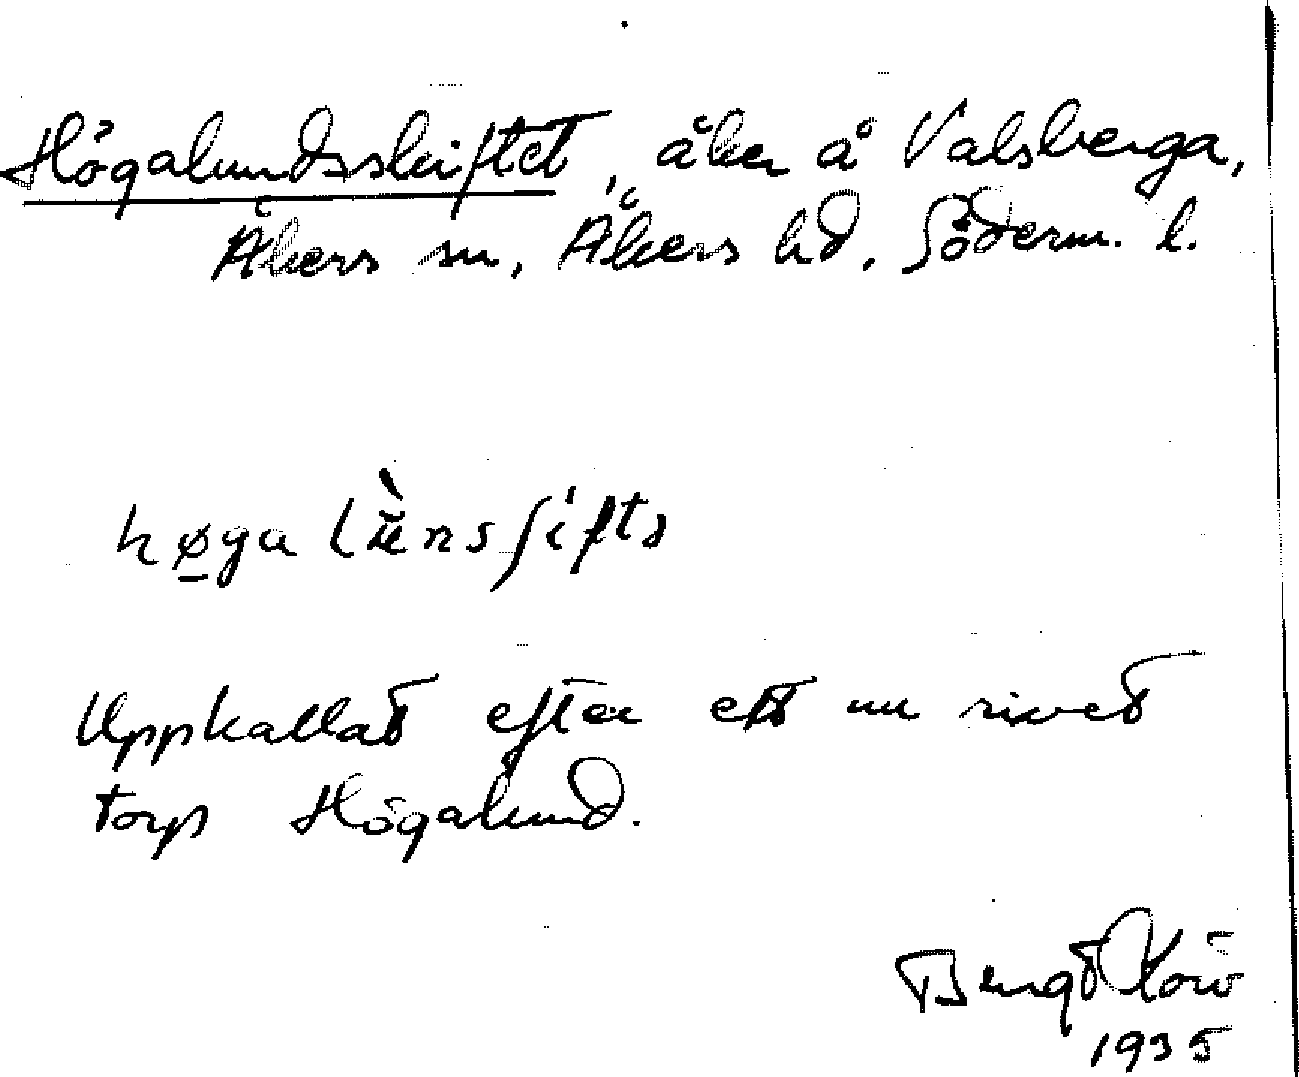 Högalundsskiftet, åker å Valsberga,
Åkers sn, Åkers hd, Söderm. l.
Uppkallad efter ett nu rivet
torp Högalund.
Bengt
1935